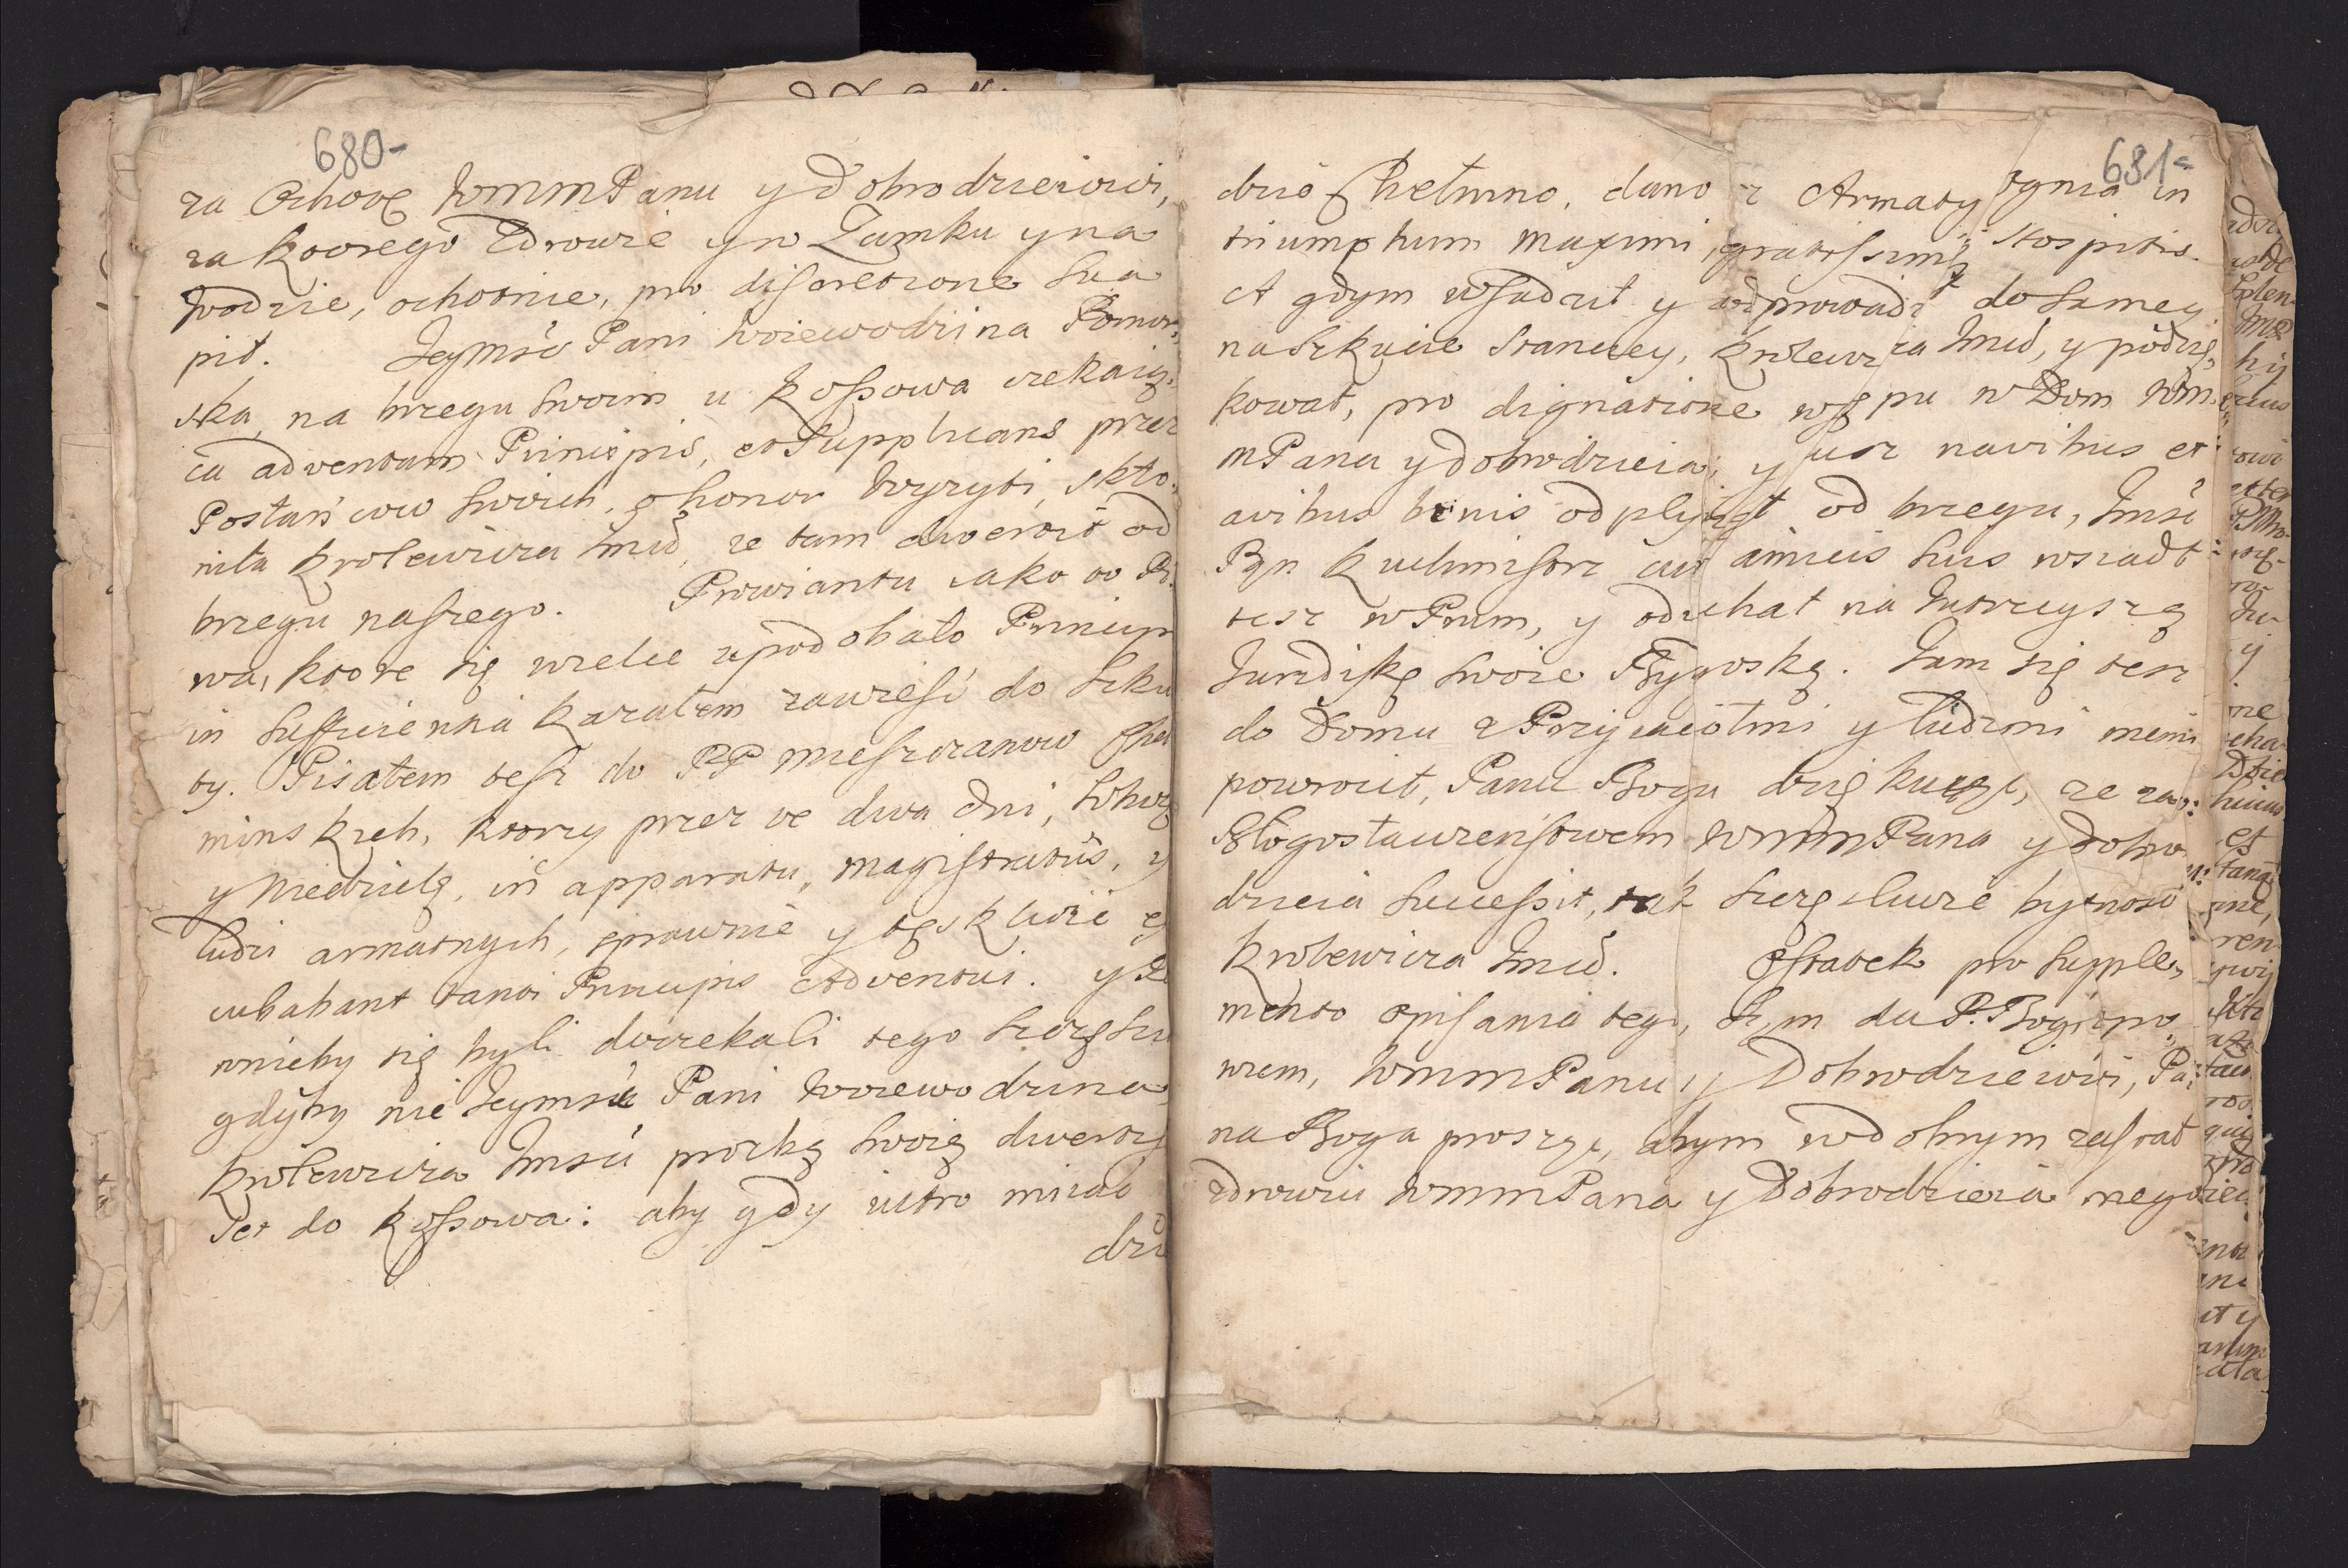 680-
za Ochotę WMMPanu y Dobrodzieiowi,
za ktorego Zdrowie y w Zamku y na
wodzie, ochotnie, pro discretione sua
pił. Jeymść Pani Woiewodzina Pomor,
ska, na brzegu swoim u Kossowa czekaią,
ca adventum Principis, et supplicans przez
Posłańcow swoich, o honor Wizyty, skło,
niła Krolewica Jmści, ze tam divertit od
brzegu naszego. Prowiantu iako to Pi,
wa, ktore się wielce upodobało Princip
in sufficienti kazałem zawieść do szku
ty. Pisałem tesz do PP Mieszczanow Cheł
minskich, ktorzy przez te dwa dni, Sobotę
y Niedzielę, in apparatu, Magistratus, y
ludzi armatnych, sprawnie y tęskliwie ex
cubabant tanti Principis Adventui. y
wnieby się byli doczekali tego szczęścia
gdyby nie Jeymść Pani Woiewodzina
Krolewica Jmści prozbą swoią divertit
set do Kossowa: aby gdy iutro miiać
dzie
681-
dzie Chełmno, dano z Armaty ognia in
triumphum maximi, gratissimi Hospitis.
A gdym wsadził y odprowadził do samey
na Szkucie Stancyey, Krolewica Jmści, y podzię,
kował, pro dignatione wstępu w Dom WM
MPana y Dobrodzieia; y iusz navibus et
avibus bonis odplynął od brzegu, Jmść
Pan Kuchmistrz cum amicis suis wsiadł
tesz w Pram, y odiechał na tuteczyszą
Jurzdiskę swoie Bygoską. Jam się tesz
do Domu z Przyiaciołmi y ludzmi memi
powrocił, Panu Bogu dziękuiąc, ze za
Błogosławienstwem WMMPana y Dobro
dzieia successit, tak szczęsliwie bytnosć
Krolewica Jmści. Ostatek pro supple,
mento opisania tego, czym da P. Bog opo,
wiem, WMMPanu y Dobrodzieiowi, Pa,
na Boga prosząc, abym w dobrym zastał
zdrowiu WMMPana y Dobrodzieia mego